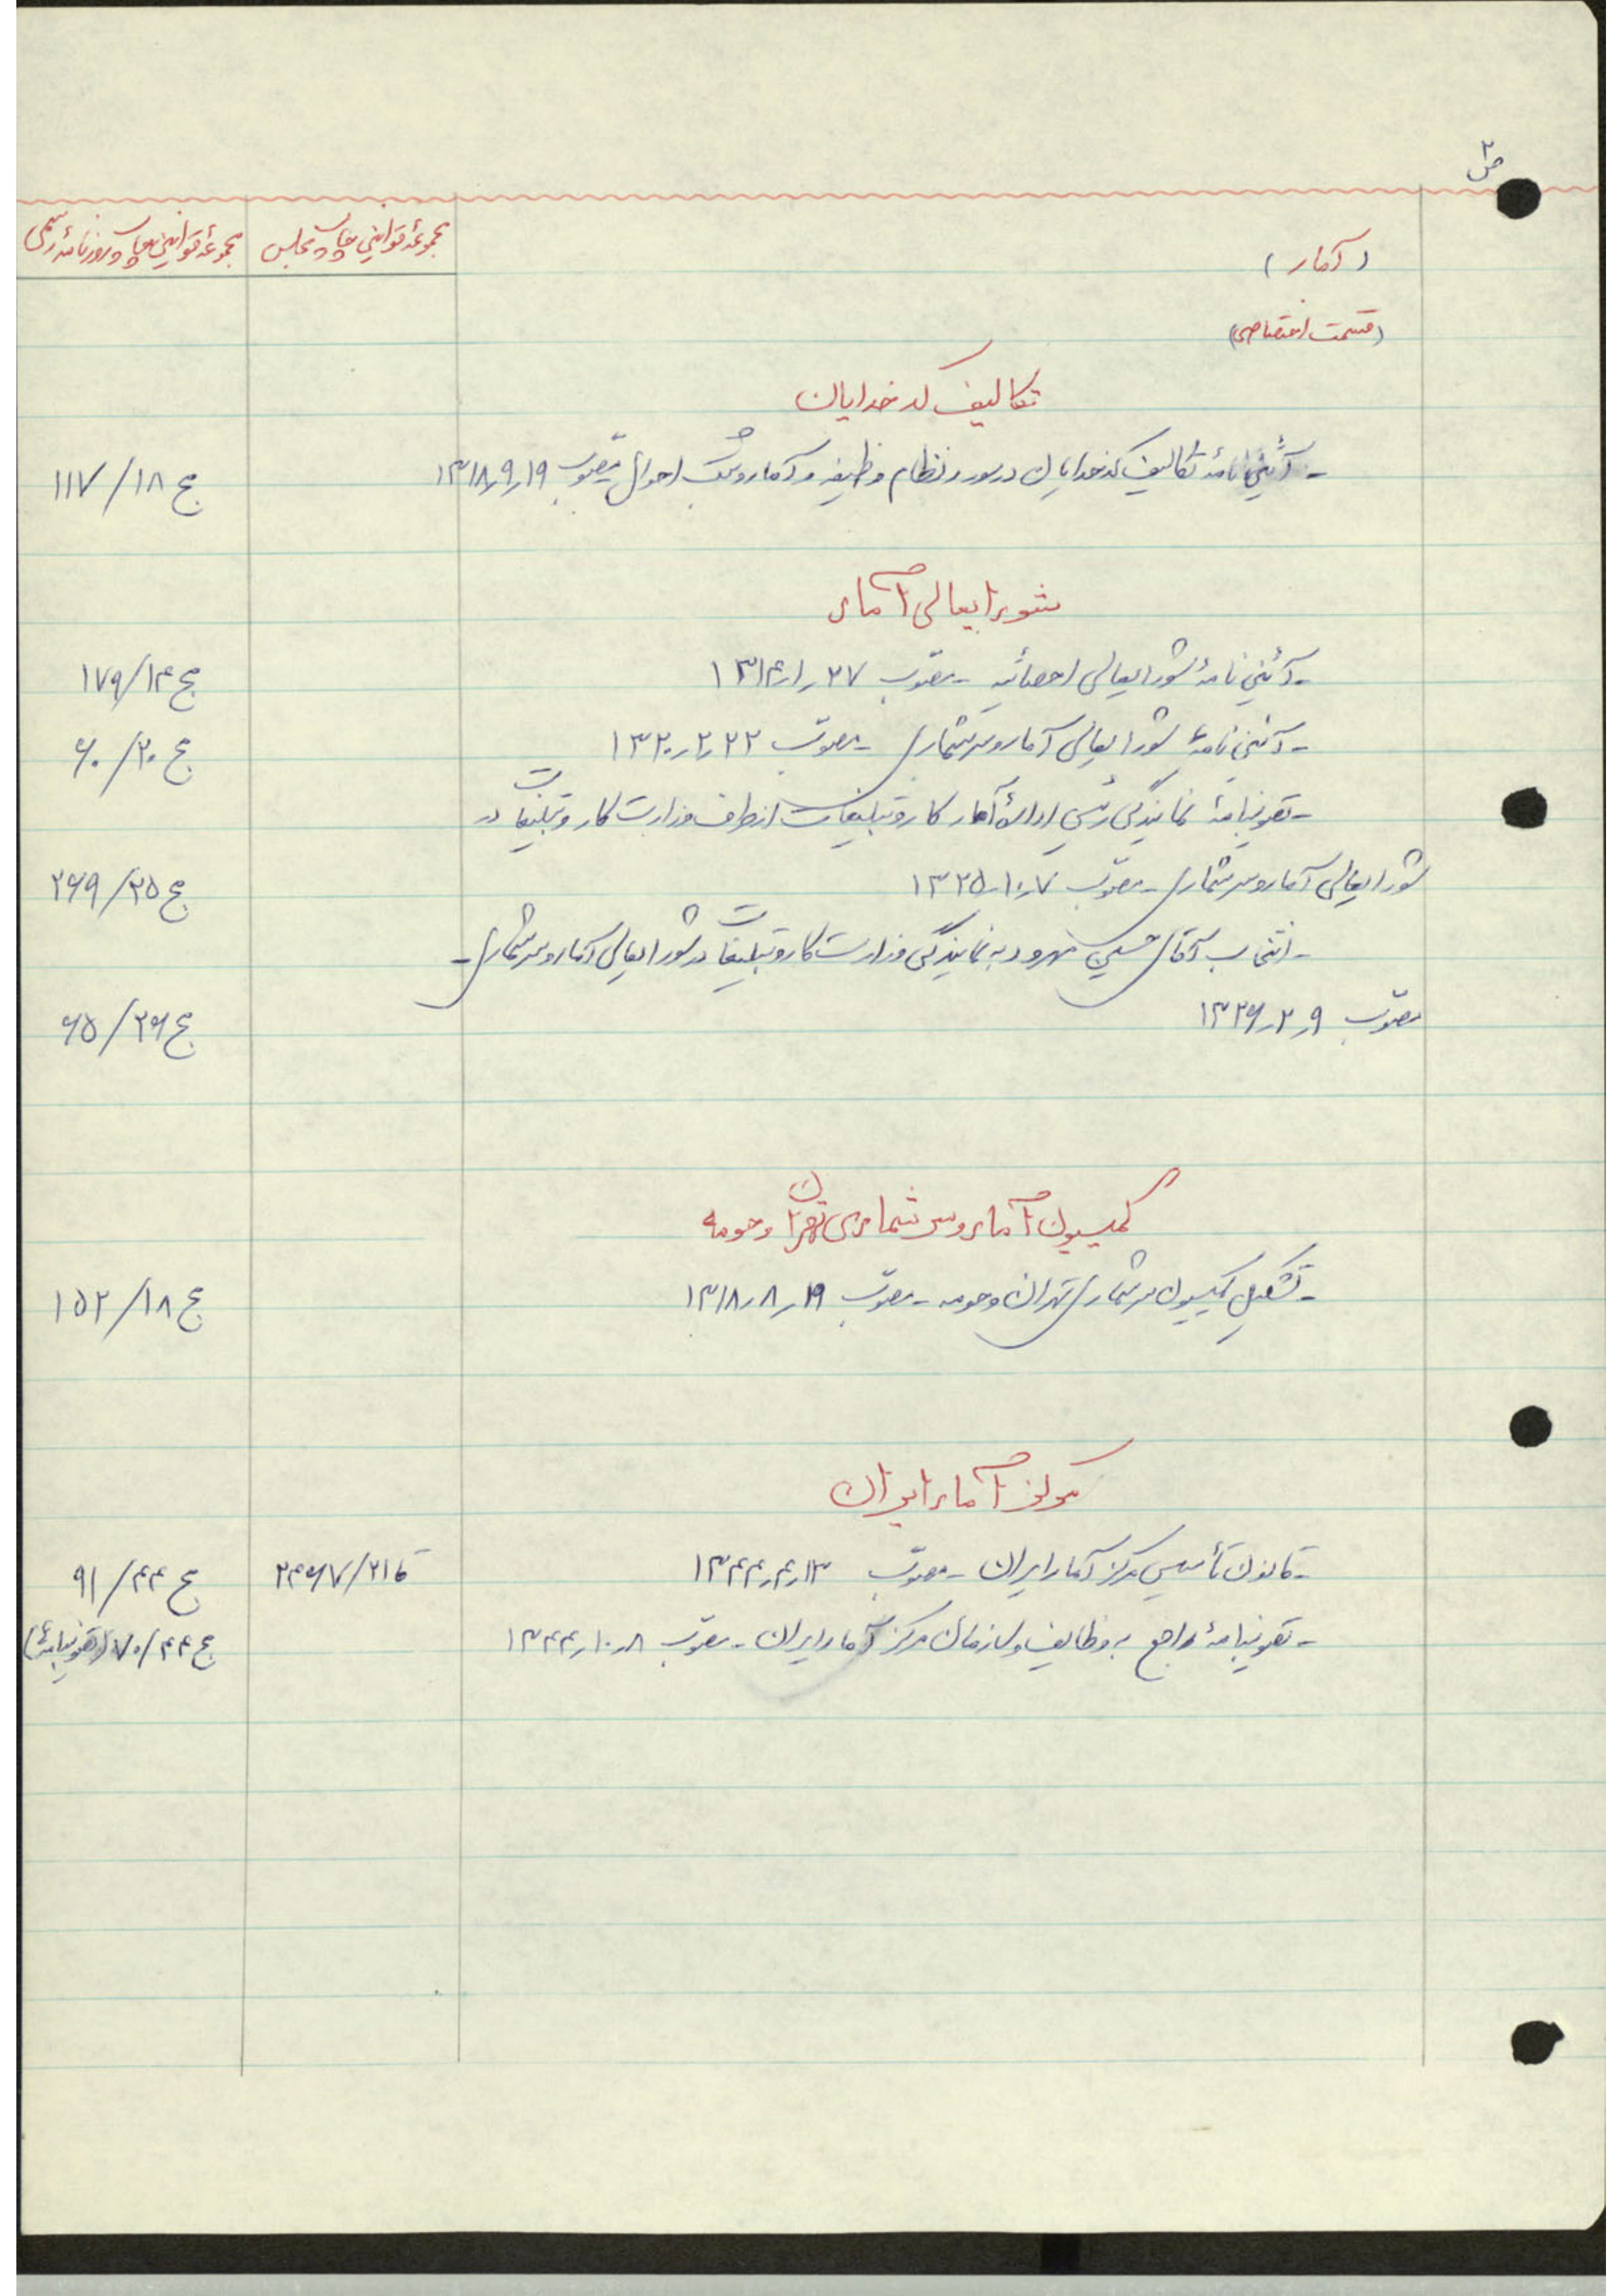 ص ۲
(آمار)
مجموعهٔ قوانین چاپ مجلس
مجموعهٔ قوانین چاپ روزنامهٔ رسمی
(قسمت اختصاصی)
تکالیف کدخدایان
- آئین نامهٔ تکالیف کدخدایان در مورد نظام وظیفه و آمار و ثبت احوال مصوب ۱۳۱۸٫۹٫۱۹ ج ۱۸/۱۱۷
شورایعالی آمار
- آئین نامهٔ شورایعالی احصائیه - مصوب ۱۳۱۴٫۱٫۲۷ ج ۱۴/۱۷۹
- آئین نامهٔ شورایعالی آمار و سرشماری - مصوب ۱۳۲۰٫۲٫۲۲ ج ۲۰/۶۰
- تصویبنامهٔ نمایندگی رئیس ادارهٔ آمار کار و تبلیغات از طرف وزارت کار و تبلیغات در
شورایعالی آمار و سرشماری - مصوب ۱۳۲۵٫۱۰٫۷ ج ۲۵/۲۶۹
- انتخاب آقای حسین بهرود به نمایندگی وزارت کار و تبلیغات در شورایعالی آمار و سرشماری -
مصوب ۱۳۲۶٫۲٫۹ ج ۲۶/۶۵
کمیسیون آمار و سرشماری تهران و حومه
- تشکیل کمیسیون سرشماری تهران و حومه - مصوب ۱۳۱۸٫۸٫۱۹ ج ۱۸/۱۵۲
مرکز آمار ایران
- قانون تأسیس مرکز آمار ایران - مصوب ۱۳۴۴٫۴٫۱۳ ق ۲۱/۲۴۶۷ ج ۴۴/۹۱
- تصویبنامهٔ راجع به وظایف و سازمان مرکز آمار ایران - مصوب ۱۳۴۴٫۱۰٫۸ ج ۴۴/۷۰ (تصویبنامهٔ)